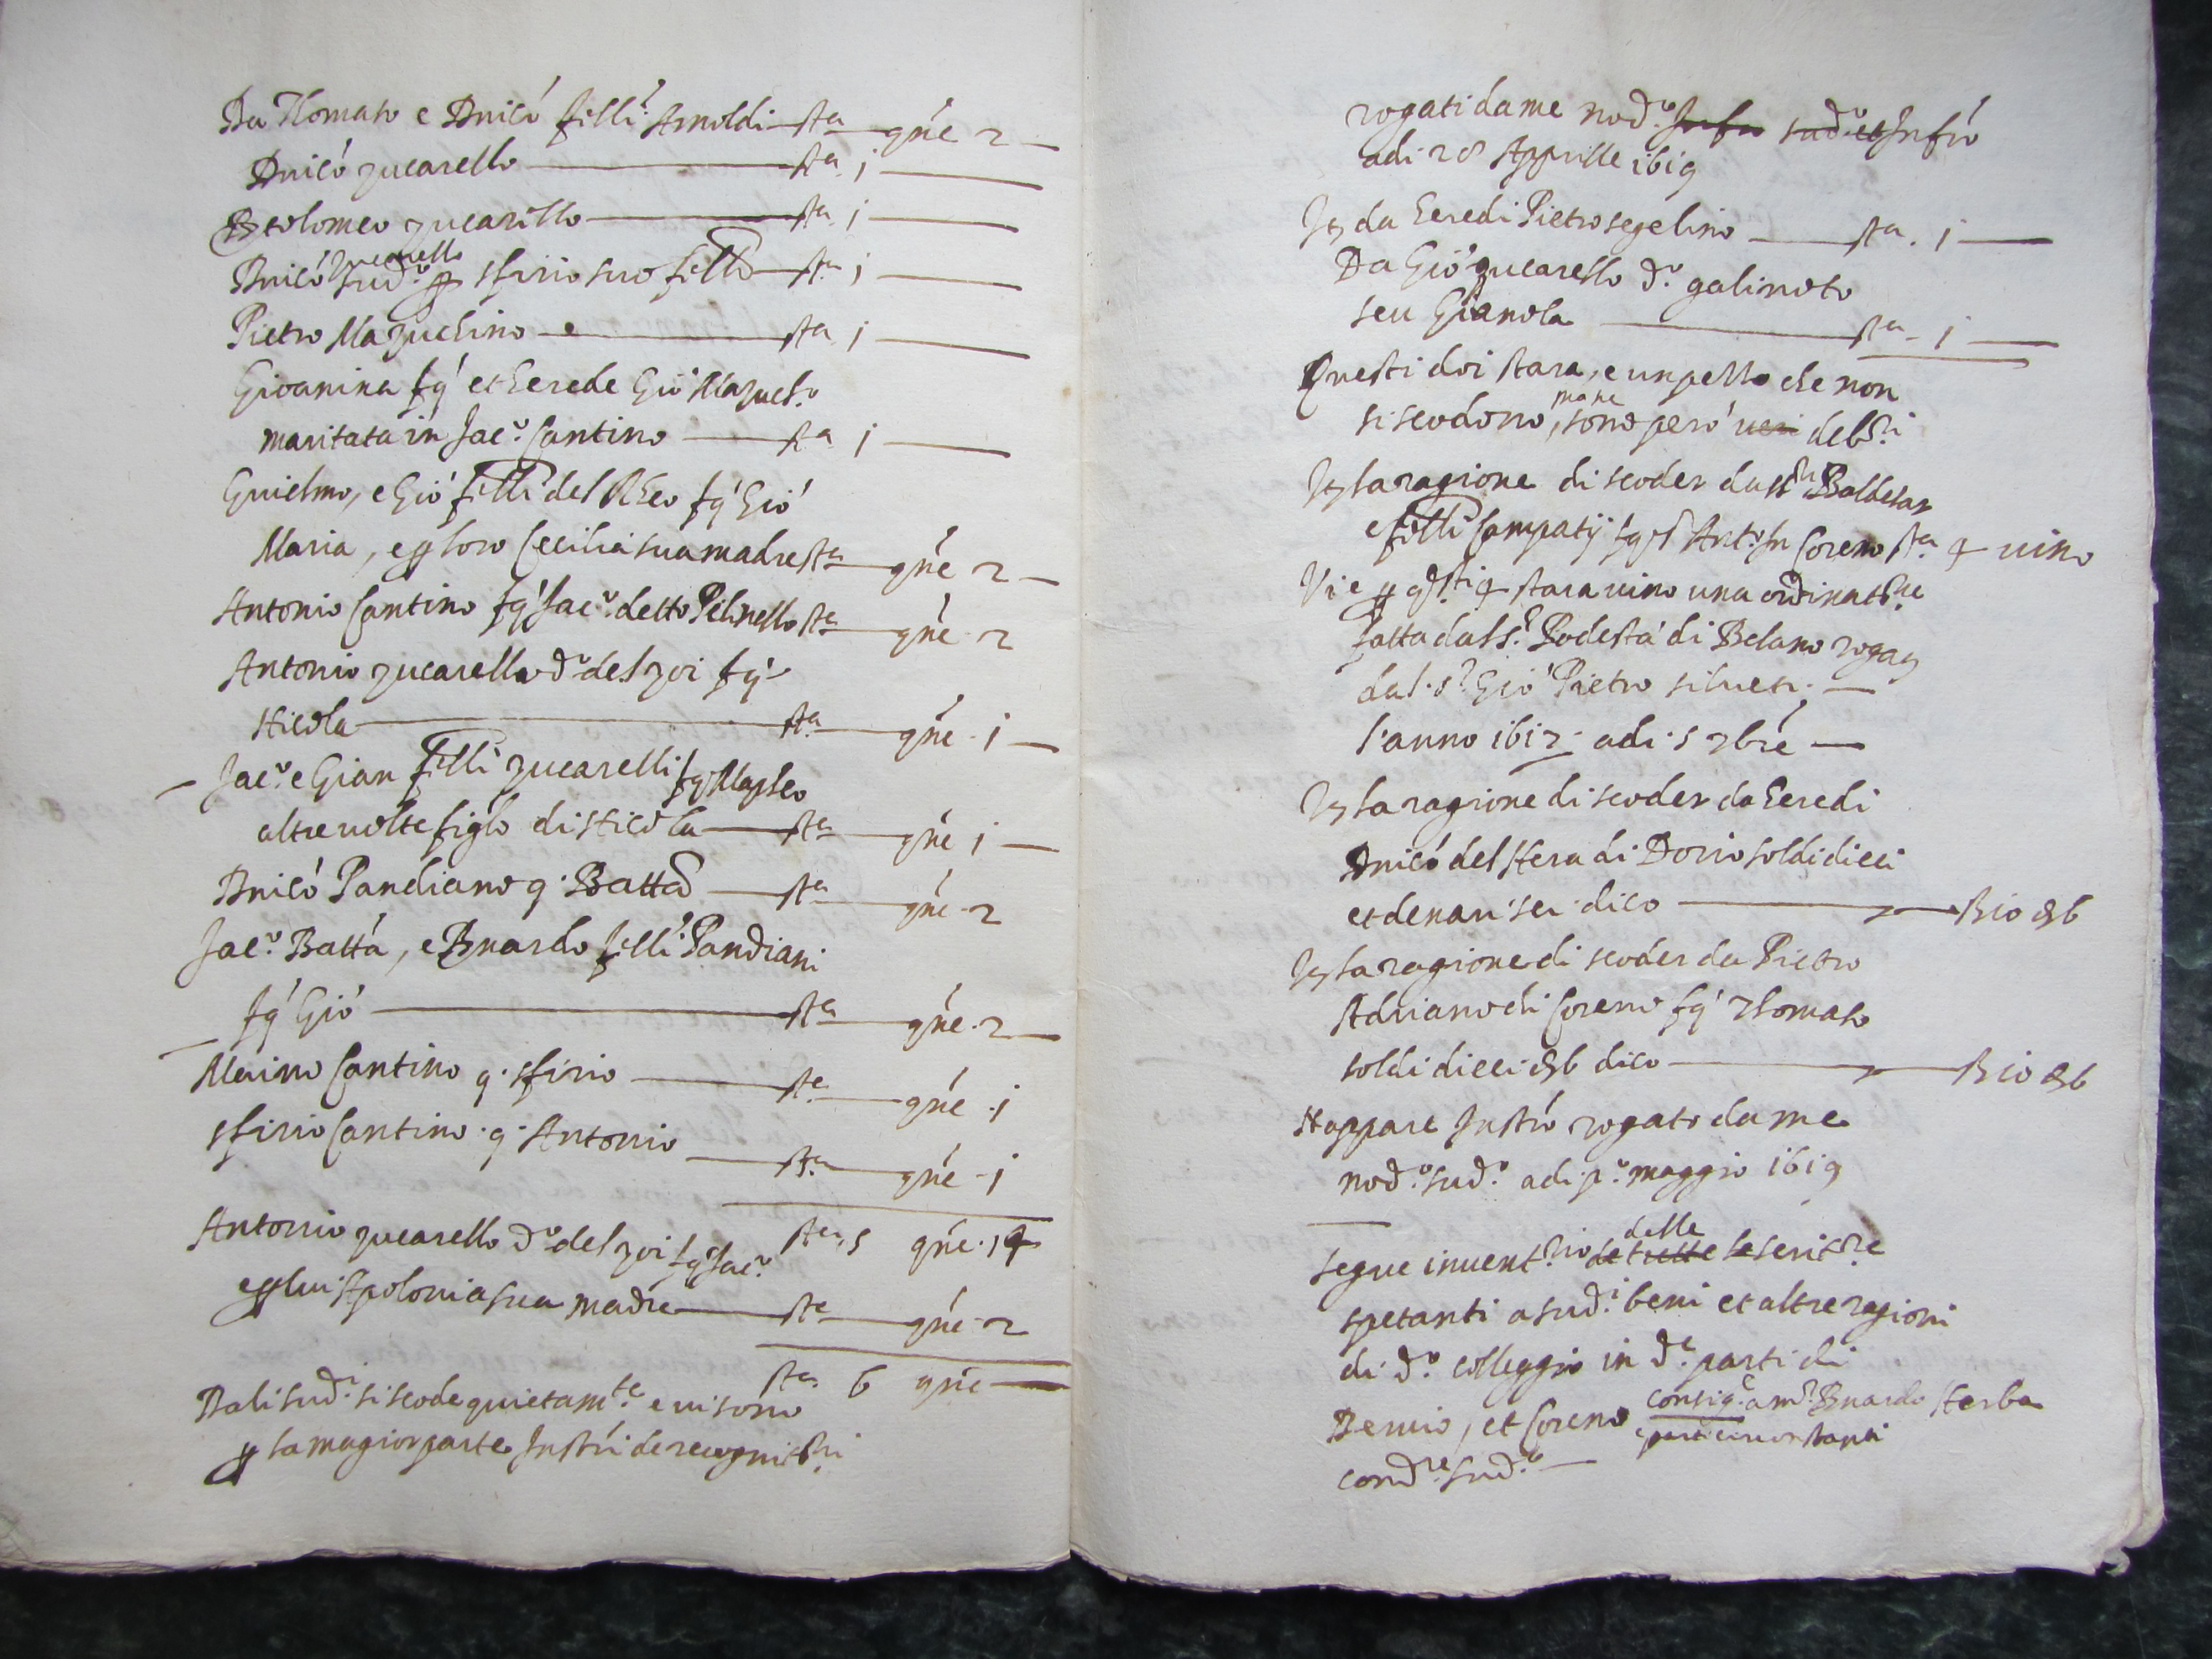 Da Thomaso e Dnicó felli Arnoldi sta gné 2
Dnicó zucarello sta j
Btolomeo zucarello sta j
zucarello
Dnicó sud.º sfirio suo fello sta j
Pietro Mazuchino sta j
Gioanina fq et herede Gió Mazuch.º
maritata in Jac.º Cantino sta j
Guielmo, e Gió felli del Rheo fq Gió
Maria, e loro Cecilia sua madre sta gné 2
Antonio Cantino fq Jac.º detto Pelinello sta gné 2
Antonio zucarello d.º del zoi fq
Nicola sta gné j
Jac.º e Gian felli zucarelli fq Mapheo
altre volte figlo di Nicola sta gné j
Dnicó Pandiano q. Batta sta gné 2
Jac.º Batta, e Bnardo felli Pandiani
fq Gió sta gné 2
Maino Cantino q. sfirio sta gné j
sfirio Cantino q. Antonio sta gné j
sta 5 gné 14
Antonio zucarello d.º del zoi fq Jac.º
e lui Apolonia sua madre sta gné 2
sta 6 gné
Dali sud.i si scode quietam.te e vi sono
la magior parte Instri de recognit.ni
rogati da me nod.º sud.º et Infró
adi 28 Apprille 1619
It da heredi Pietro segelino sta. j
Da Gió zucarello d.º galinoto
seu Gianola sta j
Questi doi stara, e un pello che non
mane
si scodono, sono però veri deb.ri
It la ragione di scoder da Baldesar
e felli Campatij fq Ant.º In Coreno sta 4 vino
Vi e q.sti 4 stara vino una ordinat.ne
fatta dal S.r Podestà di Belano rogat
dal S.r Gió Pietro silvest.
l'anno 1617 adi 5 7bré
It la ragione di scoder da heredi
Dnicó del Hera di Dorio soldi dieci
et denari sei dico s 10 d 6
It la ragione di scoder da Pietro
Adriano di Coreno fq Thomaso
soldi dieci d 6 dico s 10 d 6
N'appare Instró rogato da me
nod.º sud.º adi p.º maggio 1619
delle
segue invent.rio de tutte le scrit.re
spetanti a sud.i beni et altre ragioni
di d.º colleggio in d.e parti di
Dervio, et Coreno consig.e a m.r Bnardo Herba
cond.re sud.º